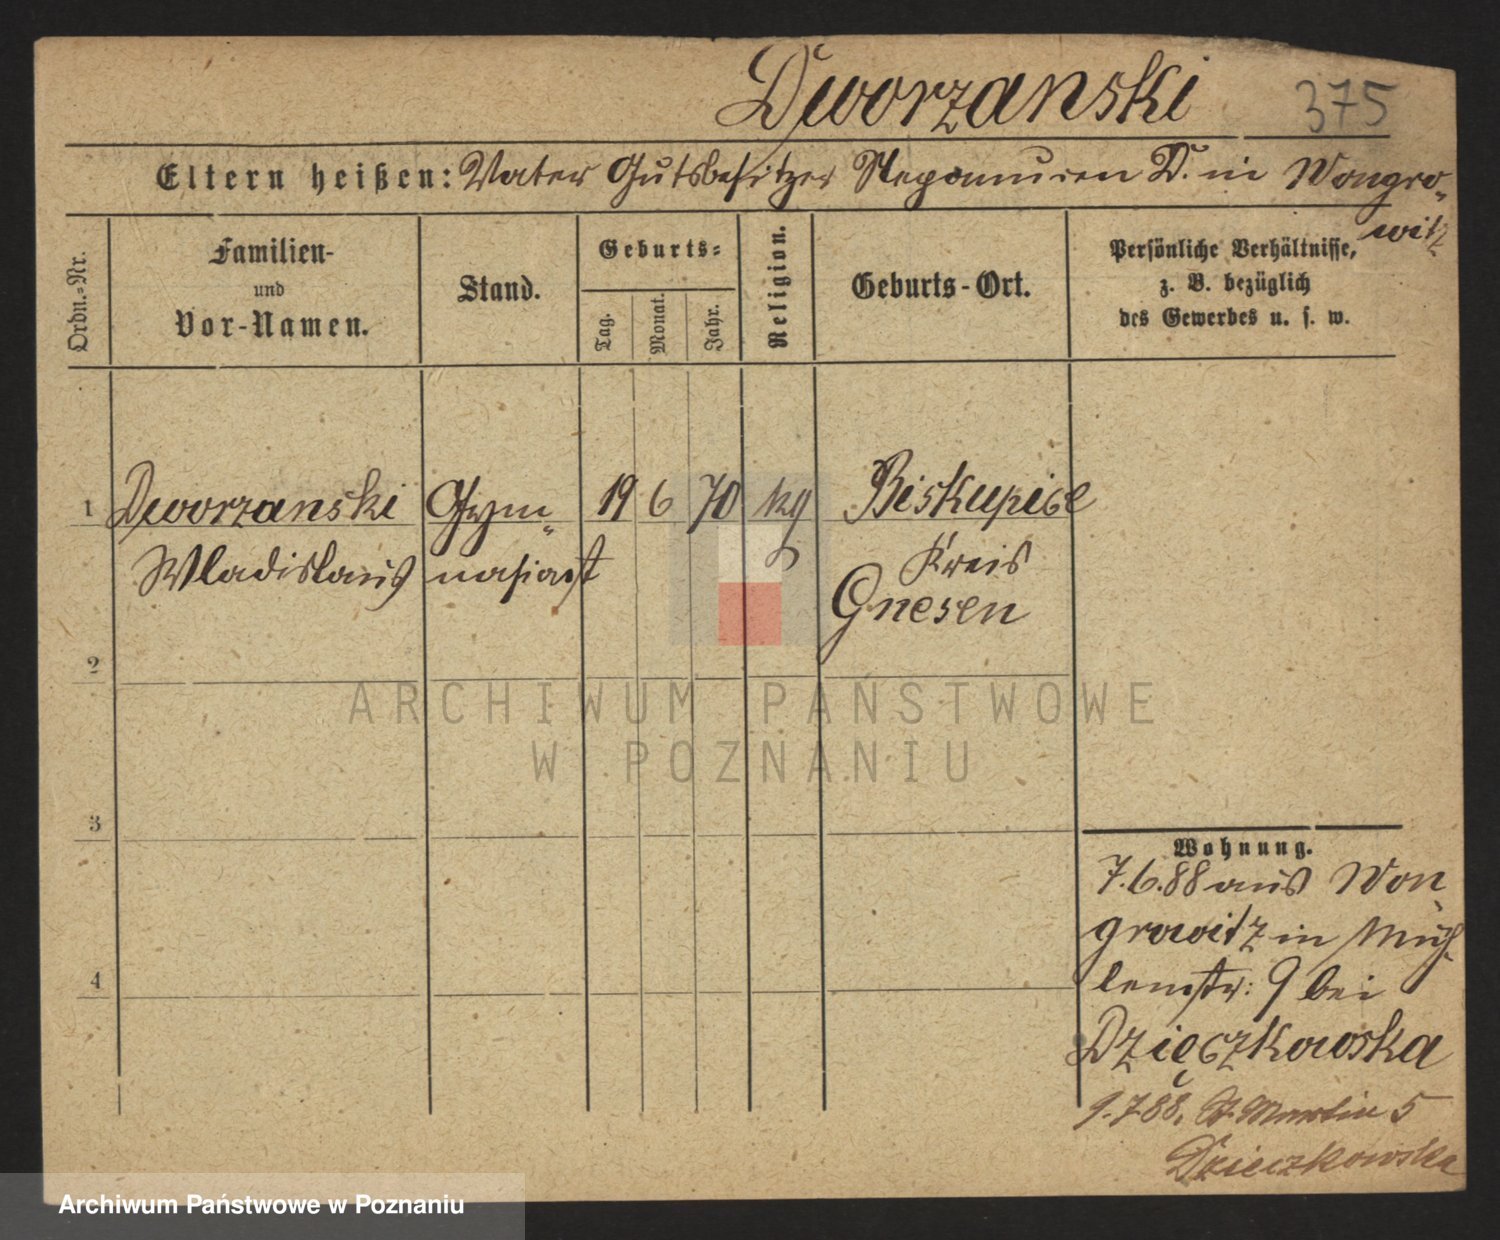 Dworzanski 375
Eltern heißen: Vater Gutsbesitzer Nepomucen D. in Wongro-
witz
Ordn.-Nr.
Familien-
und
Vor-Namen.
Stand.
Geburts-
Tag.
Monat.
Jahr.
Religion.
Geburts-Ort.
Persönliche Verhältnisse,
z. B. bezüglich
des Gewerbes u. s. w.
1 Dworzanski Gym- 19 6 70 kg Biskupice
Wladislaus nasiast Kreis
Gnesen
2
ARCHIWUM PAŃSTWOWE
W POZNANIU
3
4
Wohnung.
7.6.88 aus Won
growitz in Müh-
lenstr: 9 bei
Dzięczkowska
9.7.88. St. Martin 5
Dzieczkowska
Archiwum Państwowe w Poznaniu